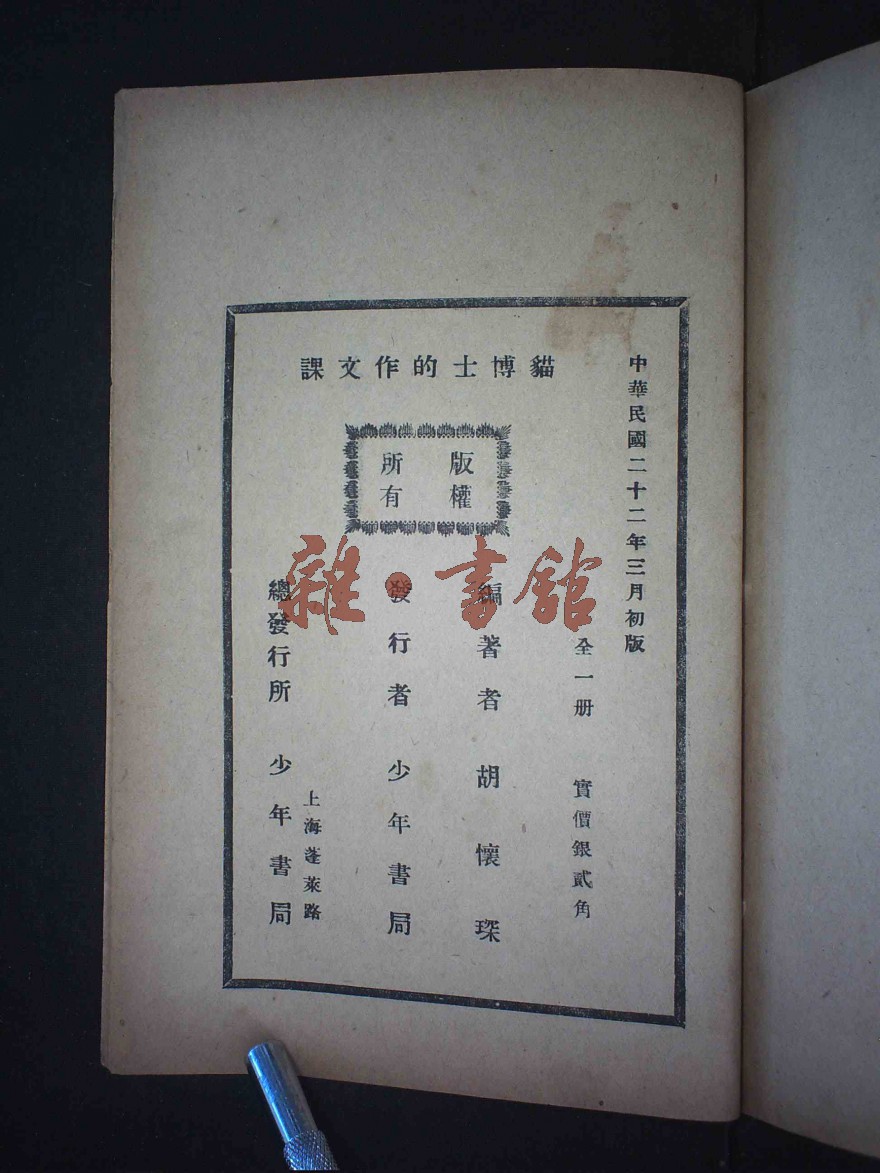 中華民國二十二年三月初版
貓博士的作文課
版權
所有
全一册 實價銀貳角
編著者 胡懷琛
發行者 少年書局
上海蓬萊路
總發行所 少年書局
雜·書館